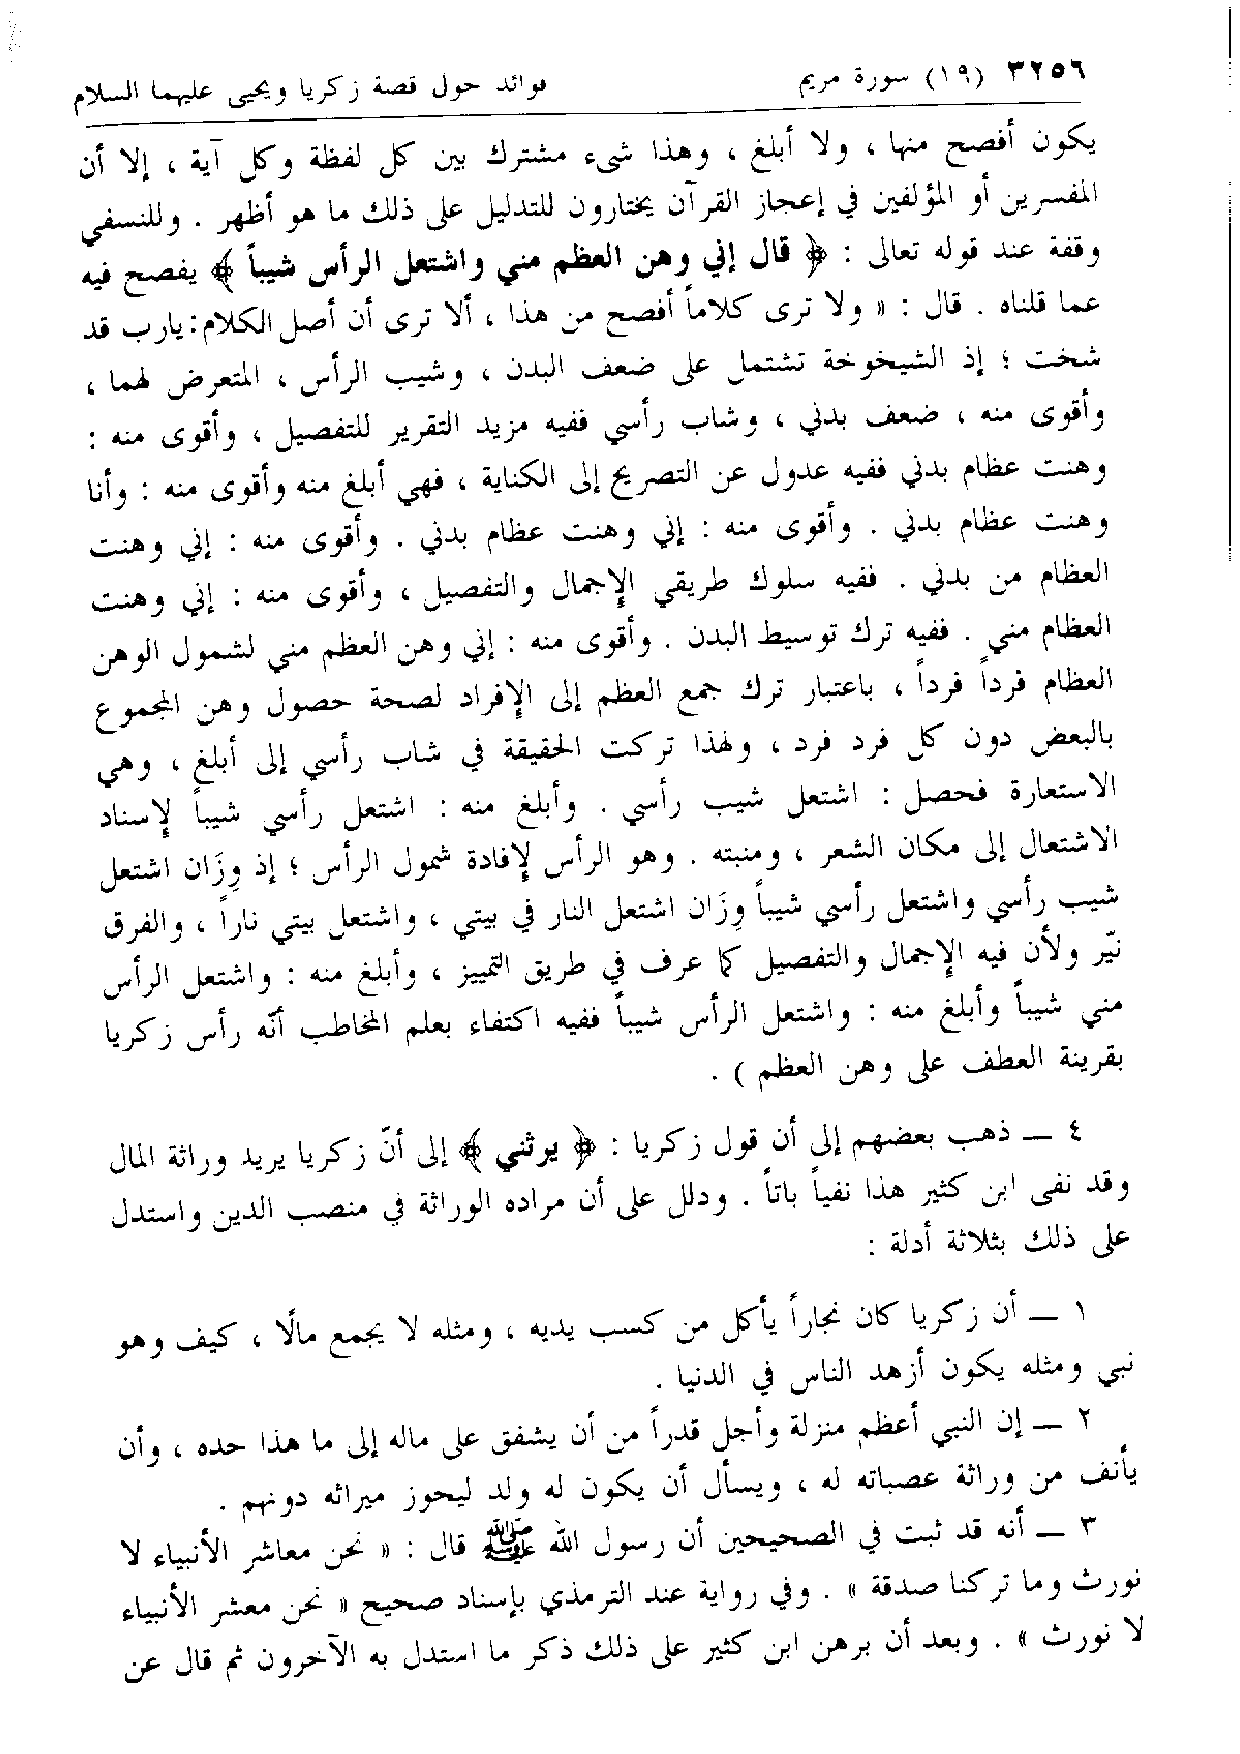 ٣٢٥٦ (١٩) سورة مريم فوائد حول قصة زكريا ويحيى عليهما السلام
يكون أفصح منها ، ولا أبلغ ، وهذا شيء مشترك بين كل لفظة وكل آية ، إلا أن
المفسرين أو المؤلفين في إعجاز القرآن يختارون للتدليل على ذلك ما هو أظهر . وللنسفي
وقفة عند قوله تعالى : ﴿ قال إني وهن العظم مني واشتعل الرأس شيباً ﴾ يفصح فيه
عما قلناه . قال : « ولا ترى كلاماً أفصح من هذا ، ألا ترى أن أصل الكلام: يارب قد
شخت ؛ إذ الشيخوخة تشتمل على ضعف البدن ، وشيب الرأس ، المتعرض لهما ،
وأقوى منه ، ضعف بدني ، وشاب رأسي ففيه مزيد التقرير للتفصيل ، وأقوى منه :
وهنت عظام بدني ففيه عدول عن التصريح إلى الكناية ، فهي أبلغ منه وأقوى منه : وأنا
وهنت عظام بدني . وأقوى منه : إني وهنت عظام بدني . وأقوى منه : إني وهنت
العظام من بدني . ففيه سلوك طريقي الإجمال والتفصيل ، وأقوى منه : إني وهنت
العظام مني . ففيه ترك توسيط البدن . وأقوى منه : إني وهن العظم مني لشمول الوهن
العظام فرداً فرداً ، باعتبار ترك جمع العظم إلى الإفراد لصحة حصول وهن المجموع
بالبعض دون كل فرد فرد ، ولهذا تركت الحقيقة في شاب رأسي إلى أبلغ ، وهي
الاستعارة فحصل : اشتعل شيب رأسي . وأبلغ منه : اشتعل رأسي شيباً لإسناد
الاشتعال إلى مكان الشعر ، ومنبته . وهو الرأس لإفادة شمول الرأس ؛ إذ وِزَان اشتعل
شيب رأسي واشتعل رأسي شيباً وِزَان اشتعل النار في بيتي ، واشتعل بيتي ناراً ، والفرق
نيّر ولأن فيه الإجمال والتفصيل كما عرف في طريق التمييز ، وأبلغ منه : واشتعل الرأس
مني شيباً وأبلغ منه : واشتعل الرأس شيباً ففيه اكتفاء بعلم المخاطب أنّه رأس زكريا
بقرينة العطف على وهن العظم ) .
٤ — ذهب بعضهم إلى أن قول زكريا : ﴿ يرثني ﴾ إلى أنّ زكريا يريد وراثة المال
وقد نفى ابن كثير هذا نفياً باتاً . ودلل على أن مراده الوراثة في منصب الدين واستدل
على ذلك بثلاثة أدلة :
١ — أن زكريا كان نجاراً يأكل من كسب يديه ، ومثله لا يجمع مالًا ، كيف وهو
نبي ومثله يكون أزهد الناس في الدنيا .
٢ — إن النبي أعظم منزلة وأجل قدراً من أن يشفق على ماله إلى ما هذا حده ، وأن
يأنف من وراثة عصباته له ، ويسأل أن يكون له ولد ليحوز ميراثه دونهم .
٣ — أنه قد ثبت في الصحيحين أن رسول الله ﷺ قال : « نحن معاشر الأنبياء لا
نورث وما تركنا صدقة » . وفي رواية عند الترمذي بإسناد صحيح « نحن معشر الأنبياء
لا نورث » . وبعد أن برهن ابن كثير على ذلك ذكر ما استدل به الآخرون ثم قال عن